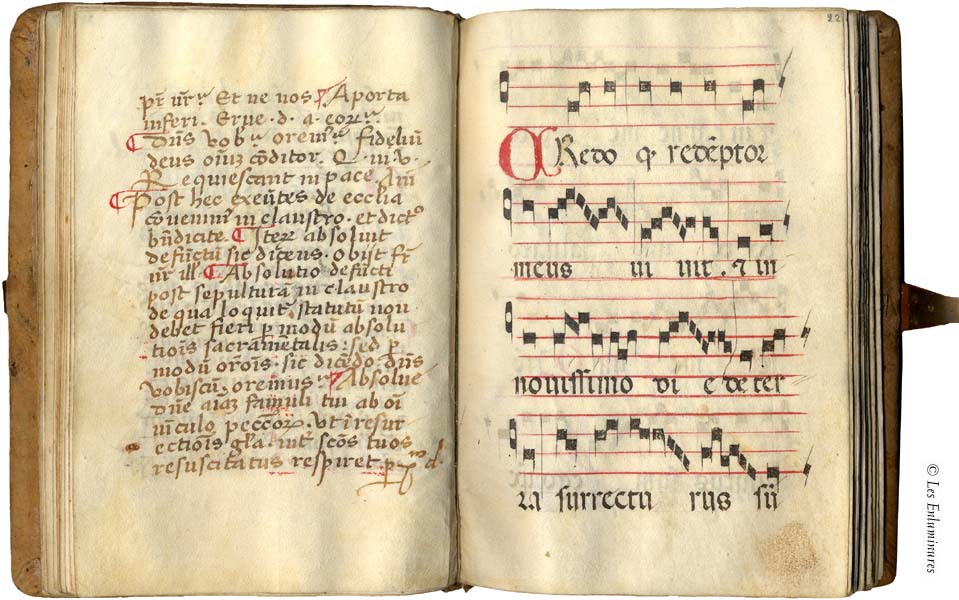 pr̄ nr̄. Et ne nos. A porta
inferi. Erue. d. a. eoꝝ.
Dn̄s vob. orem̄. fideliū
deus oīuʒ cōditor. Q. iii v.
Requiescant in pace Am̄
Post hec exeūtes de ecclīa
cōueniūt in claustro. et dicto
bn̄dicite. absoluit
defūctū sic dicens. Obijt fr̄
nr̄ ill. Absolutio defūcti
post sepulturā in claustro
de qua loquit statutū non
debet fieri p modū absolu
tiois sacramētalis: sed p
modū orōis. sic dicēdo. dn̄s
vobiscū. oremus. Absolue
dn̄e aīaʒ famuli tui ab oī
uīculo pecc̄oꝝ. vt ī resur
ectiois gl̄a. int scōs tuos
resuscitatus respiret. p d.
22
CRedo q redēptor
meus ui uit. ⁊ in
nouissimo di e de ter
ra surrectu rus sū
© Les Enluminures